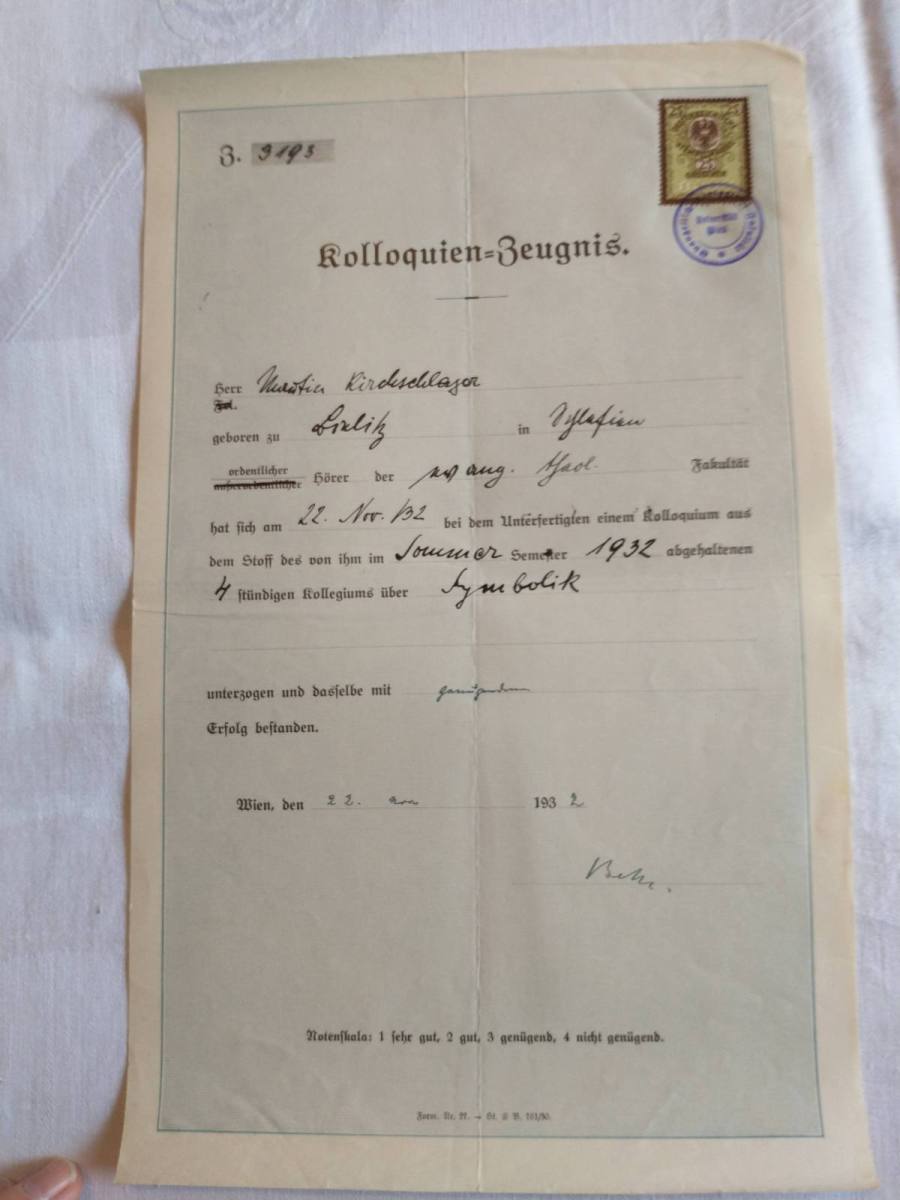 Z. 3193
25 25
25
Universität
Wien
Kolloquien=Zeugnis.
Herr Martin Kirchschlager
Frl.
geboren zu Bielitz in Schlesien
ordentlicher
außerordentlicher Hörer der evang. theol. Fakultät
hat sich am 22. Nov. 132 bei dem Unterfertigten einem Kolloquium aus
dem Stoff des von ihm im Sommer Semester 1932 abgehaltenen
4 stündigen Kollegiums über Symbolik
unterzogen und dasselbe mit genügendem
Erfolg bestanden.
Wien, den 22. Nov 1932
Notenskala: 1 sehr gut, 2 gut, 3 genügend, 4 nicht genügend.
Form. Nr. 22. — St. G. B. 761/30.